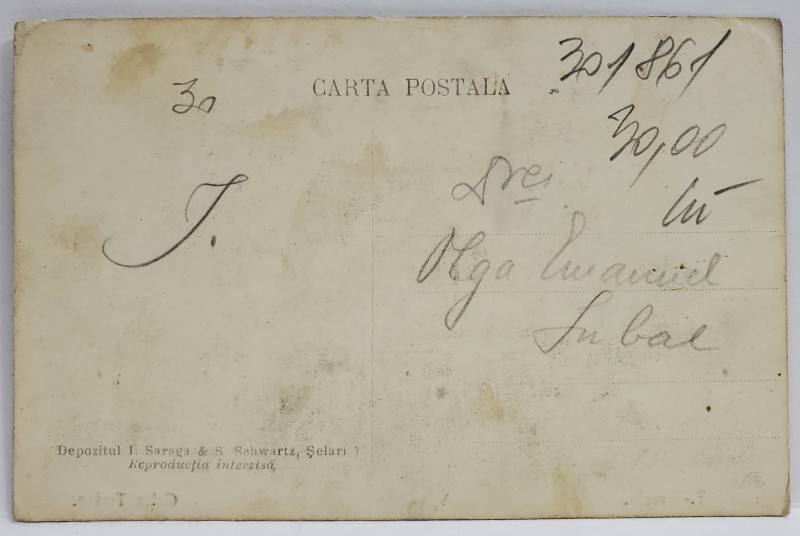 CARTA POSTALA
301861
30
30,00
J.
Olga Emanuel
Depozitul I. Saraga & S. Schwartz, Șelari 7
Reproducția interzisă